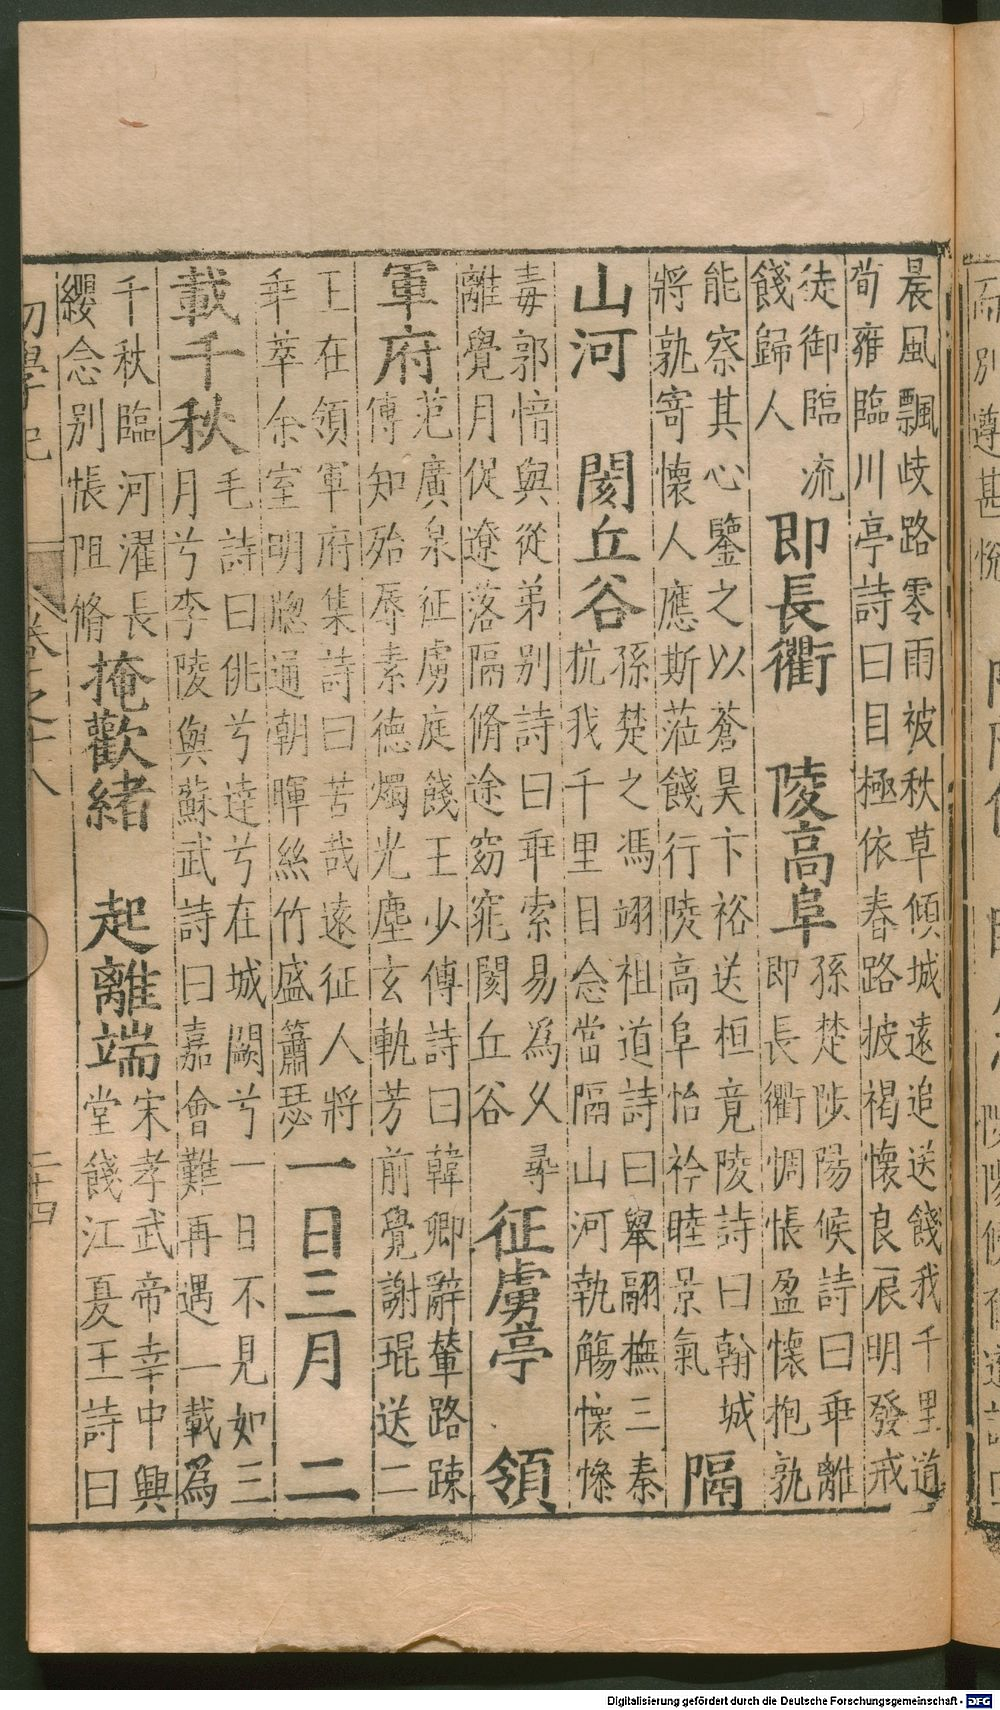 晨風飄歧路零雨被秋草傾城遠追送餞我千里道
荀雍臨川亭詩曰目極依春路披褐懷良辰明發戒
徒御臨流
餞歸人
即長衢　陵高阜
孫楚陟陽候詩曰乖離
即長衢惆悵盈懷抱孰
能察其心鑒之以蒼昊卞裕送桓竟陵詩曰翰城
將孰寄懷人應斯蒞餞行陵高阜怡衿睦景氣
隔
山河　閡丘谷
孫楚之馮翊祖道詩曰舉翮撫三秦
杭我千里目念當隔山河執觴懷慘
毒郭愔與從弟別詩曰乖索易為久尋
離覺月促遼落隔脩途窈窕閡丘谷
征虜亭　領
軍府
范廣泉征虜庭餞王少傅詩曰韓卿辭輦路疎
傅知殆辱素德燭光塵玄軌芳前覺謝琨送二
王在領軍府集詩曰苦哉遠征人將
乖萃余室明牕通朝暉絲竹盛簫瑟
一日三月　二
載千秋
毛詩曰佻兮達兮在城闕兮一日不見如三
月兮李陵與蘇武詩曰嘉會難再遇一載為
千秋臨河濯長
纓念別悵阻脩
掩歡緒　起離端
宋孝武帝幸中興
堂餞江夏王詩曰
初學記　卷之十八　二十四
Digitalisierung gefördert durch die Deutsche Forschungsgemeinschaft - DFG